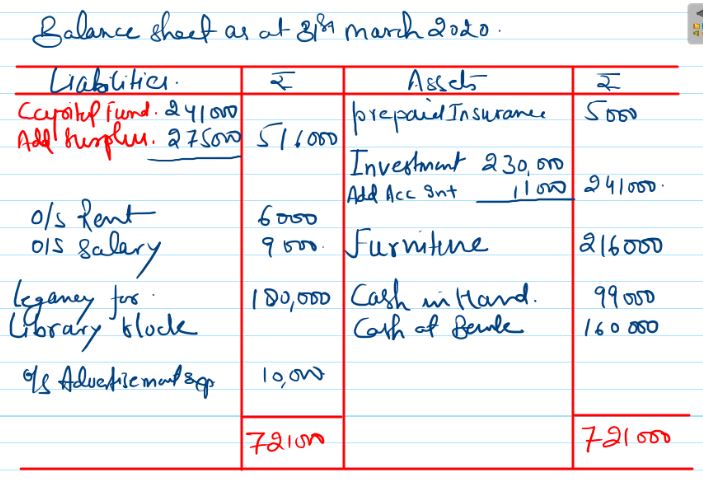 Balance sheet as at 31st march 2020.
Liabilities. ₹ Assets ₹
Capital Fund. 241000 prepaid Insurance 5000
Add Surplus. 275000 516000
Investment 230,000
Add Acc Int 11000 241000.
O/s Rent 6000
O/S Salary 9000. Furniture 216000
Legacy for. 180,000 Cash in Hand. 99000
Library block Cash at Bank 160000
O/s Advertisement exp 10,000
721000 721000